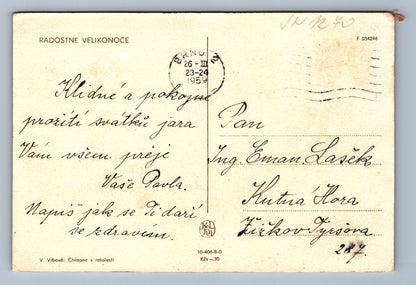 RADOSTNÉ VELIKONOCE
F 034246
BRNO 2
26 - III
23-24
1959
Klidné a pokojné
prožití svátků jara
Vám všem přeje
Vaše Pavla.
Napiš jak se Ti daří
se zdravím.
Pan
Ing. Eman Lašek
Kutná Hora
Žižkov Tyršova
287.
10-406-8-0
Kčs –,30
V. Vrbová: Chlapec s ratolestí